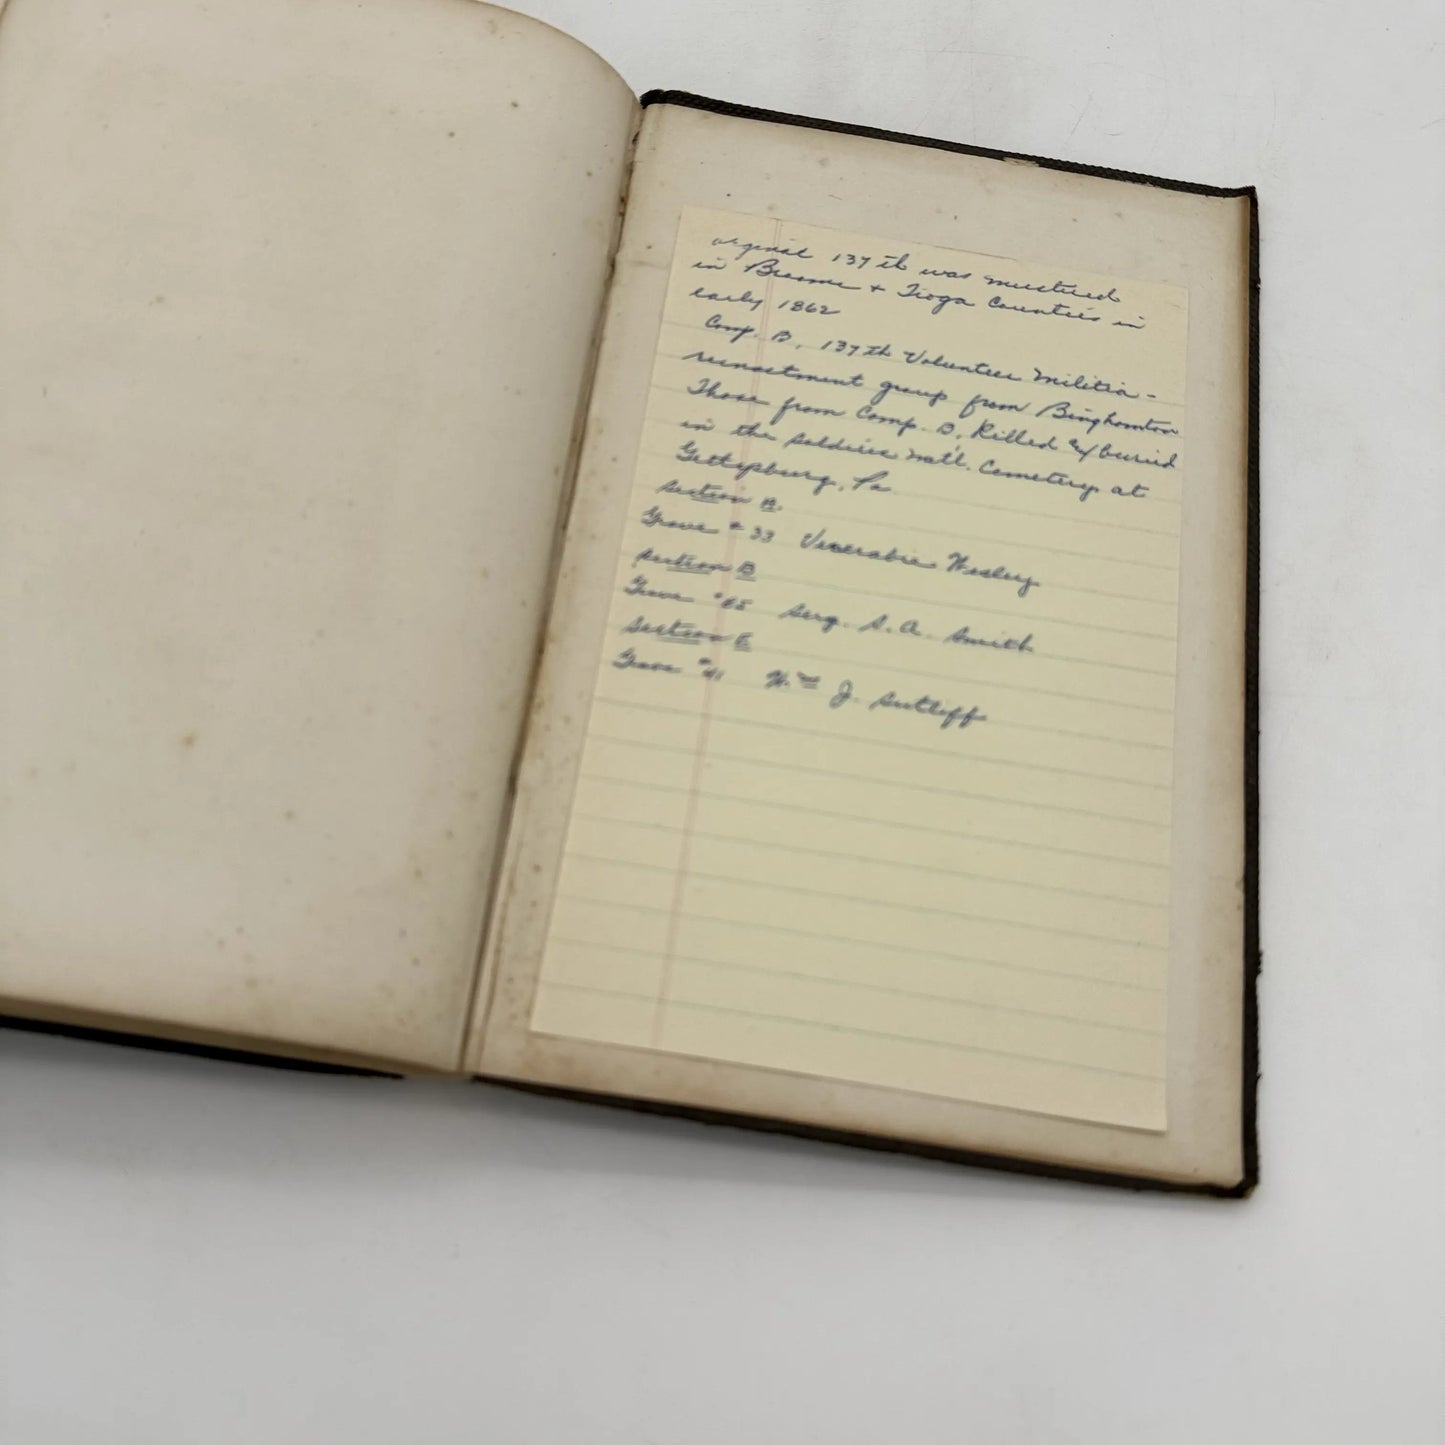 orginal 137th was mustered
in Broome + Tioga Counties in
early 1862
Comp. B, 137th Volunteer Militia -
reinactment group from Binghamton
Those from Comp. B, Killed & buried
in the soldiers Nat'l. Cemetery at
Gettysburg, Pa
Section
Grave # 33 Wesley
Section B
Grave # Serg. S. A. Smith
Section E
Grave # Wm J. Sutliff